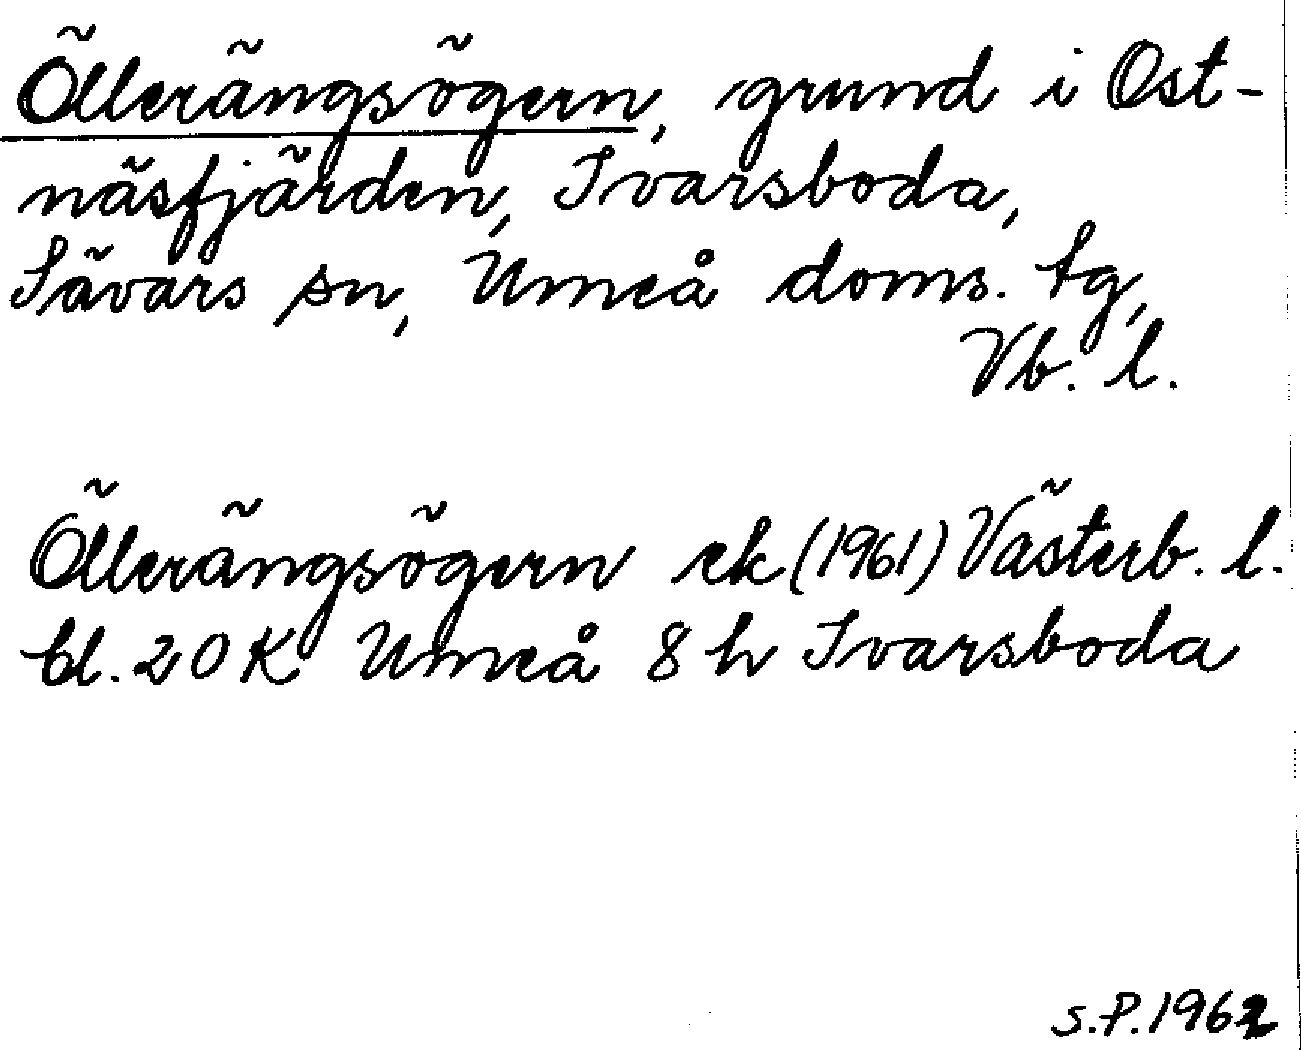 Öllerängsögern, grund i Ost-
näsfjärden, Ivarsboda,
Sävars sn, Umeå doms. tg,
Vb. l.
Öllerängsögern ek (1961) Västerb. l.
bl. 20 K Umeå 8 h Ivarsboda
S.P. 1962